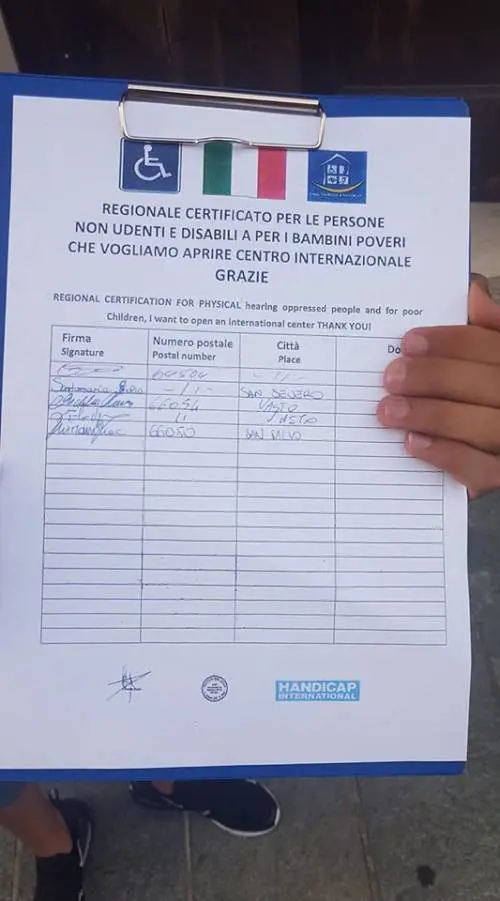 REGIONALE CERTIFICATO PER LE PERSONE
NON UDENTI E DISABILI A PER I BAMBINI POVERI
CHE VOGLIAMO APRIRE CENTRO INTERNAZIONALE
GRAZIE
REGIONAL CERTIFICATION FOR PHYSICAL hearing oppressed people and for poor
Children, I want to open an international center THANK YOU!
Firma Numero postale Città Do
Signature Postal number Place
SAN SEVERO
66054 VASTO
VASTO
66050 SAN SALVO
HANDICAP
INTERNATIONAL